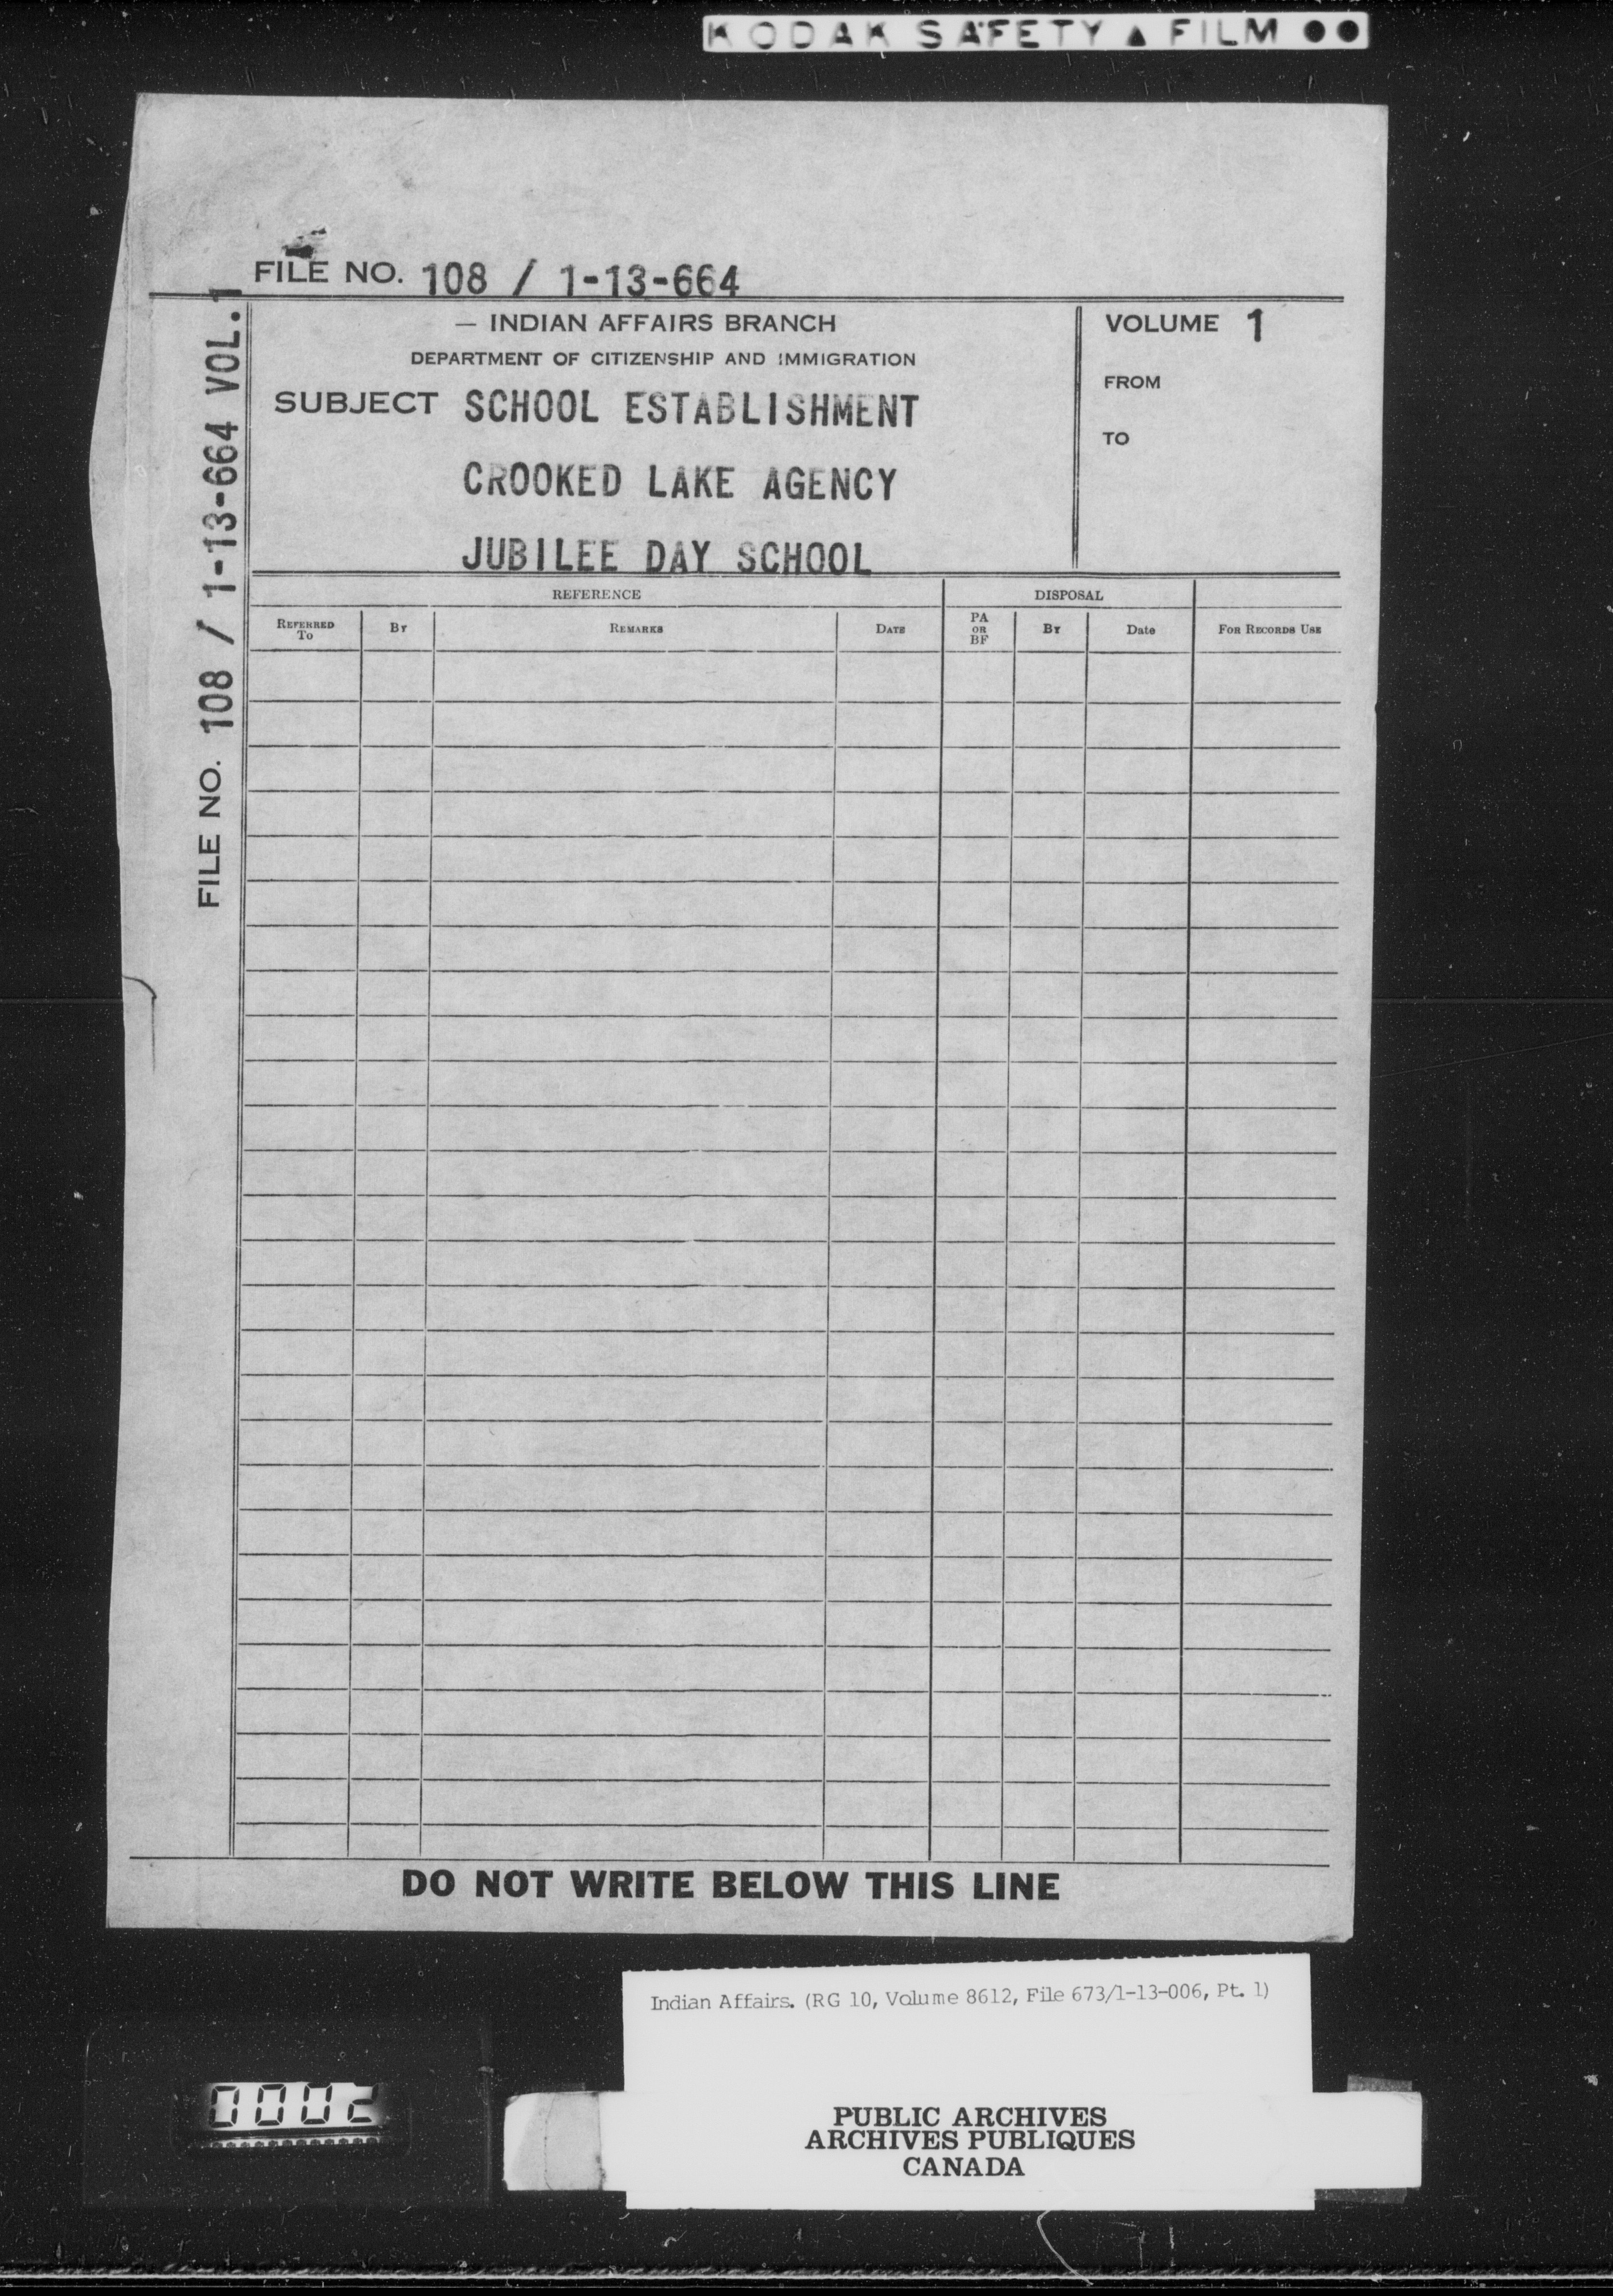 KODAK SAFETY ▲ FILM ●●
FILE NO. 108 / 1-13-664
— INDIAN AFFAIRS BRANCH
DEPARTMENT OF CITIZENSHIP AND IMMIGRATION
SUBJECT SCHOOL ESTABLISHMENT
CROOKED LAKE AGENCY
JUBILEE DAY SCHOOL
VOLUME 1
FROM
TO
FILE NO. 108 / 1-13-664 VOL. 1
REFERENCE DISPOSAL
REFERRED TO BY REMARKS DATE PA OR BF BY Date FOR RECORDS USE
DO NOT WRITE BELOW THIS LINE
Indian Affairs. (RG 10, Volume 8612, File 673/1-13-006, Pt. 1)
0002
PUBLIC ARCHIVES
ARCHIVES PUBLIQUES
CANADA